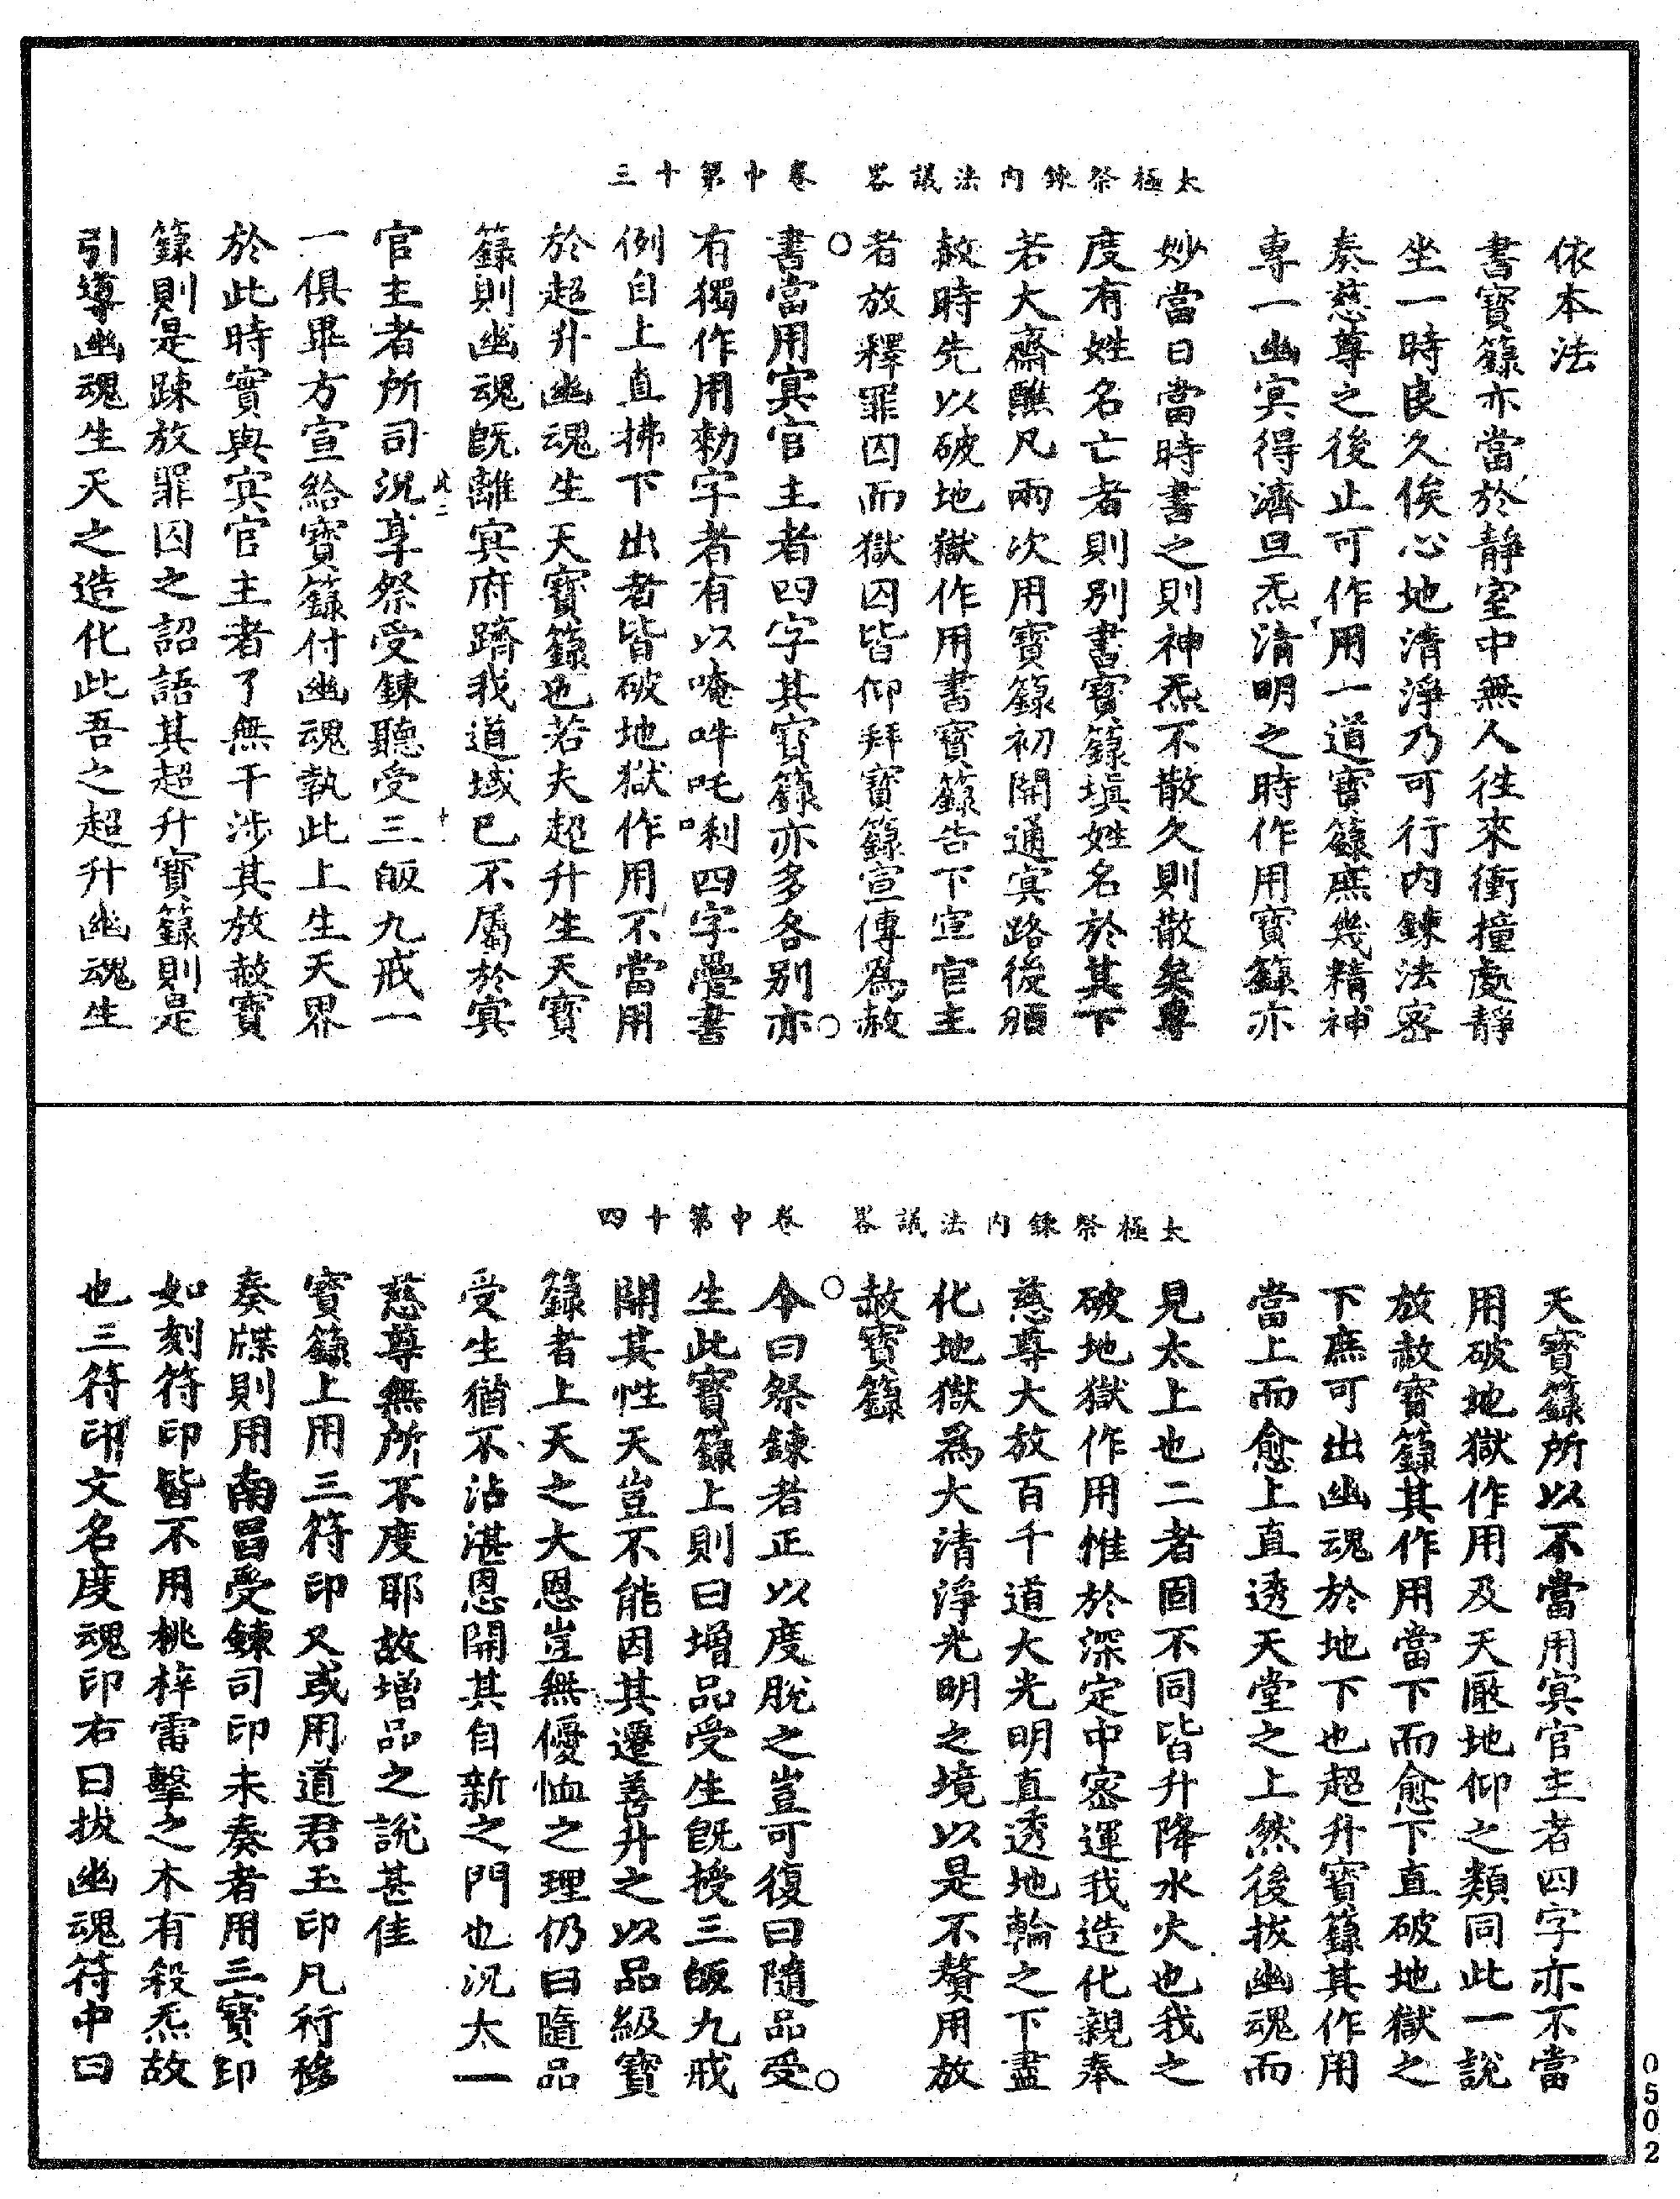 太極祭鍊內法議畧　卷中第十三
依本法
書寶籙亦當於靜室中無人往來衝撞處靜
坐一時良久俟心地清淨乃可行內鍊法密
奏慈尊之後止可作用一道寶籙庶幾精神
專一幽冥得濟旦炁清明之時作用寶籙亦
妙當日當時書之則神炁不散久則散矣專
度有姓名亡者則別書寶籙填姓名於其下
若大齋醮凡兩次用寶籙初開通冥路後頒
赦時先以破地獄作用書寶籙告下冥官主
者放釋罪囚而獄囚皆仰拜寶籙宣傳為赦
○
書當用冥官主者四字其寶籙亦多各別亦○
有獨作用勑字者有以唵吽吒唎四字疊書
例自上直拂下出者皆破地獄作用不當用
於超升幽魂生天寶籙也若夫超升生天寶
籙則幽魂旣離冥府躋我道域已不屬於冥
官主者所司況享祭受鍊聽受三皈九戒一
一俱畢方宣給寶籙付幽魂執此上生天界
於此時實與冥官主者了無干涉其放赦寶
籙則是踈放罪囚之詔語其超升寶籙則是
引導幽魂生天之造化此吾之超升幽魂生
太極祭鍊內法議畧　卷中第十四
天寶籙所以不當用冥官主者四字亦不當
用破地獄作用及天匝地仰之類同此一說
放赦寶籙其作用當下而愈下直破地獄之
下庶可出幽魂於地下也超升寶籙其作用
當上而愈上直透天堂之上然後拔幽魂而
見太上也二者固不同皆升降水火也我之
破地獄作用惟於深定中密運我造化親奉
慈尊大放百千道大光明直透地輪之下盡
化地獄為大清淨光明之境以是不贅用放
赦寶籙
○
今曰祭鍊者正以度脫之豈可復曰隨品受○
生此寶籙上則曰增品受生旣授三皈九戒
開其性天豈不能因其遷善升之以品級寶
籙者上天之大恩豈無優恤之理仍曰隨品
受生猶不沾湛恩開其自新之門也況太一
慈尊無所不度耶故增品之說甚佳
寶籙上用三符印又或用道君玉印凡行移
奏牒則用南昌受鍊司印未奏者用三寶印
如刻符印皆不用桃梓雷擊之木有殺炁故
也三符印文名度魂印右曰拔幽魂符中曰
0502